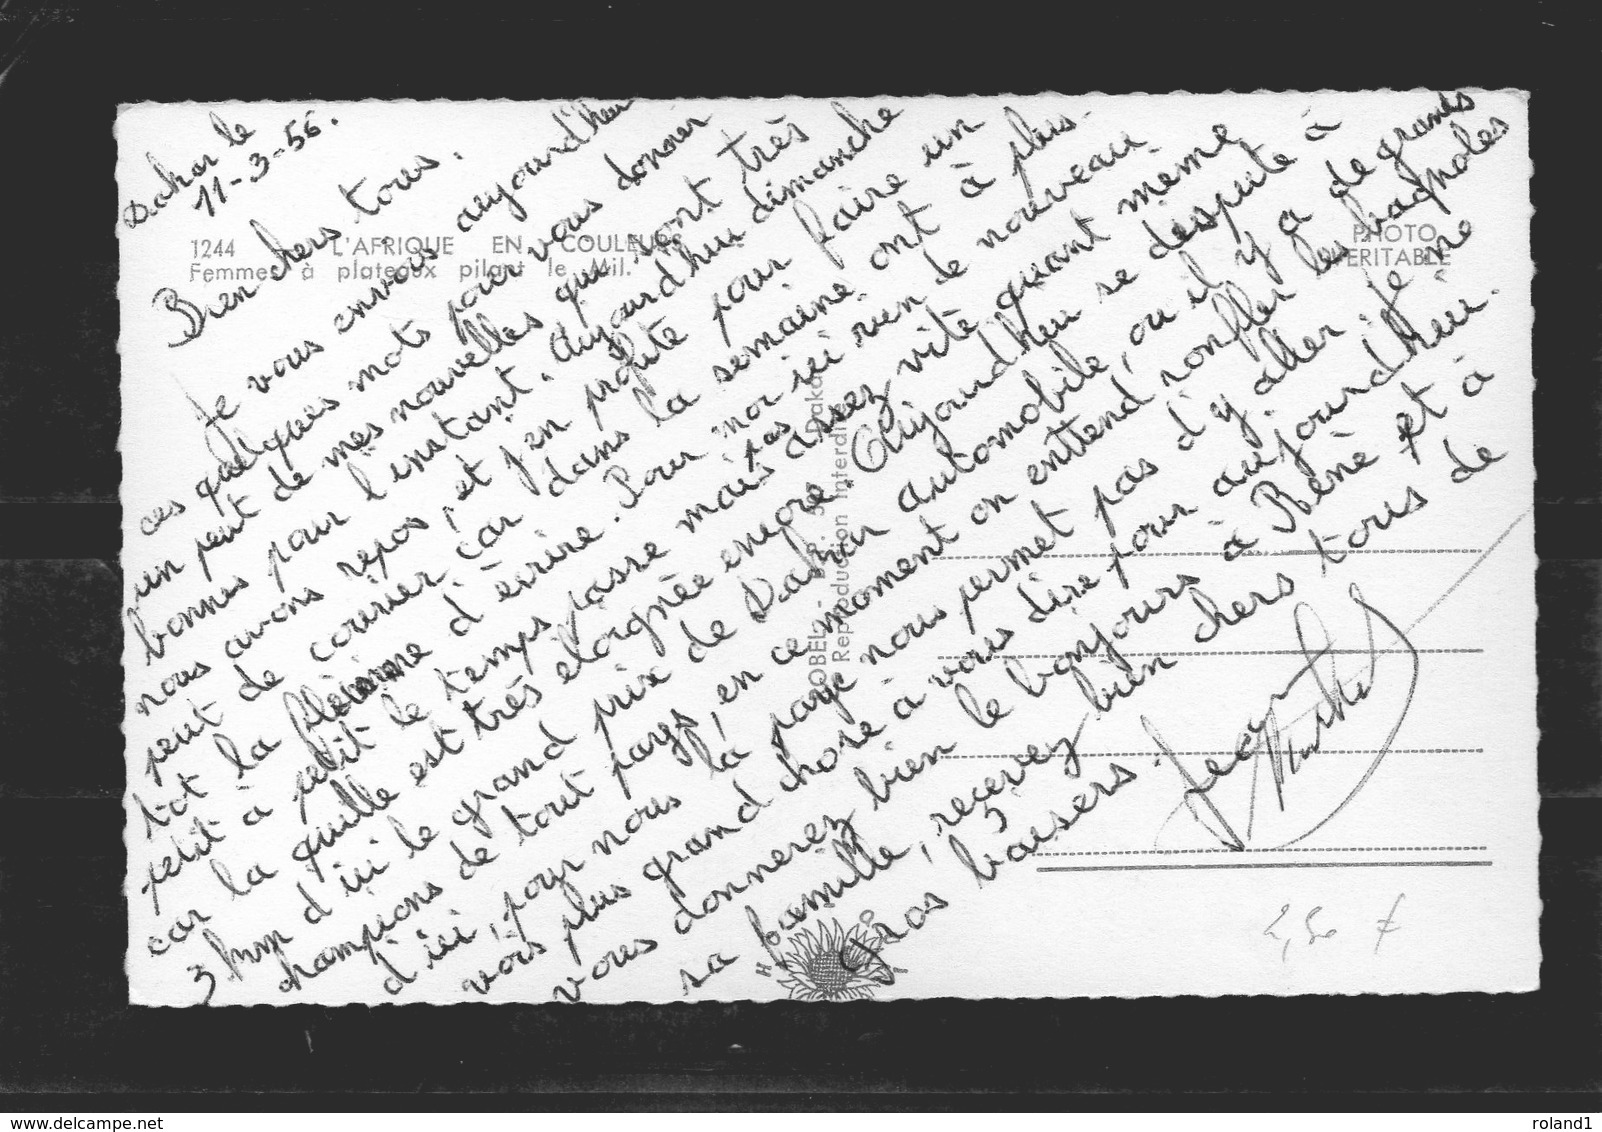 Dakar le
11-3-56.
Bien chers tous.
Je vous envois aujourd'heu
ces quelques mots pour vous donner
un peut de mes nouvelles qui sont très
bonnes pour l'instant. Aujourd'hui dimanche
nous avons repos, et j'en profite pour faire un
peut de courier car dans la semaine ont à plus
tot la flemme d'écrire. Pour moi ici rien de nouveau.
petit à petit le temps passe mais pas assez vite quant même
car la quille est très eloignée encore. Aujourdhui se dispute à
3 km d'ici le grand prix de Dakar automobile, ou il y a de grands
champions de tout pays, en ce moment on entend ronfler les bagnoles
d'ici, pour nous la paye nous permet pas d'y aller. Je ne
vois plus grand chose à vous dire pour aujourdhui.
vous donnerez bien le bonjours à René et à
sa famille, recevez bien chers tous de
Gros baisers. Jean
1244 L'AFRIQUE EN COULEURS
Femmes à plateaux pilant le Mil.
PHOTO
VERITABLE
Reproduction Interdite
2,50 €
delcampe.net
roland1